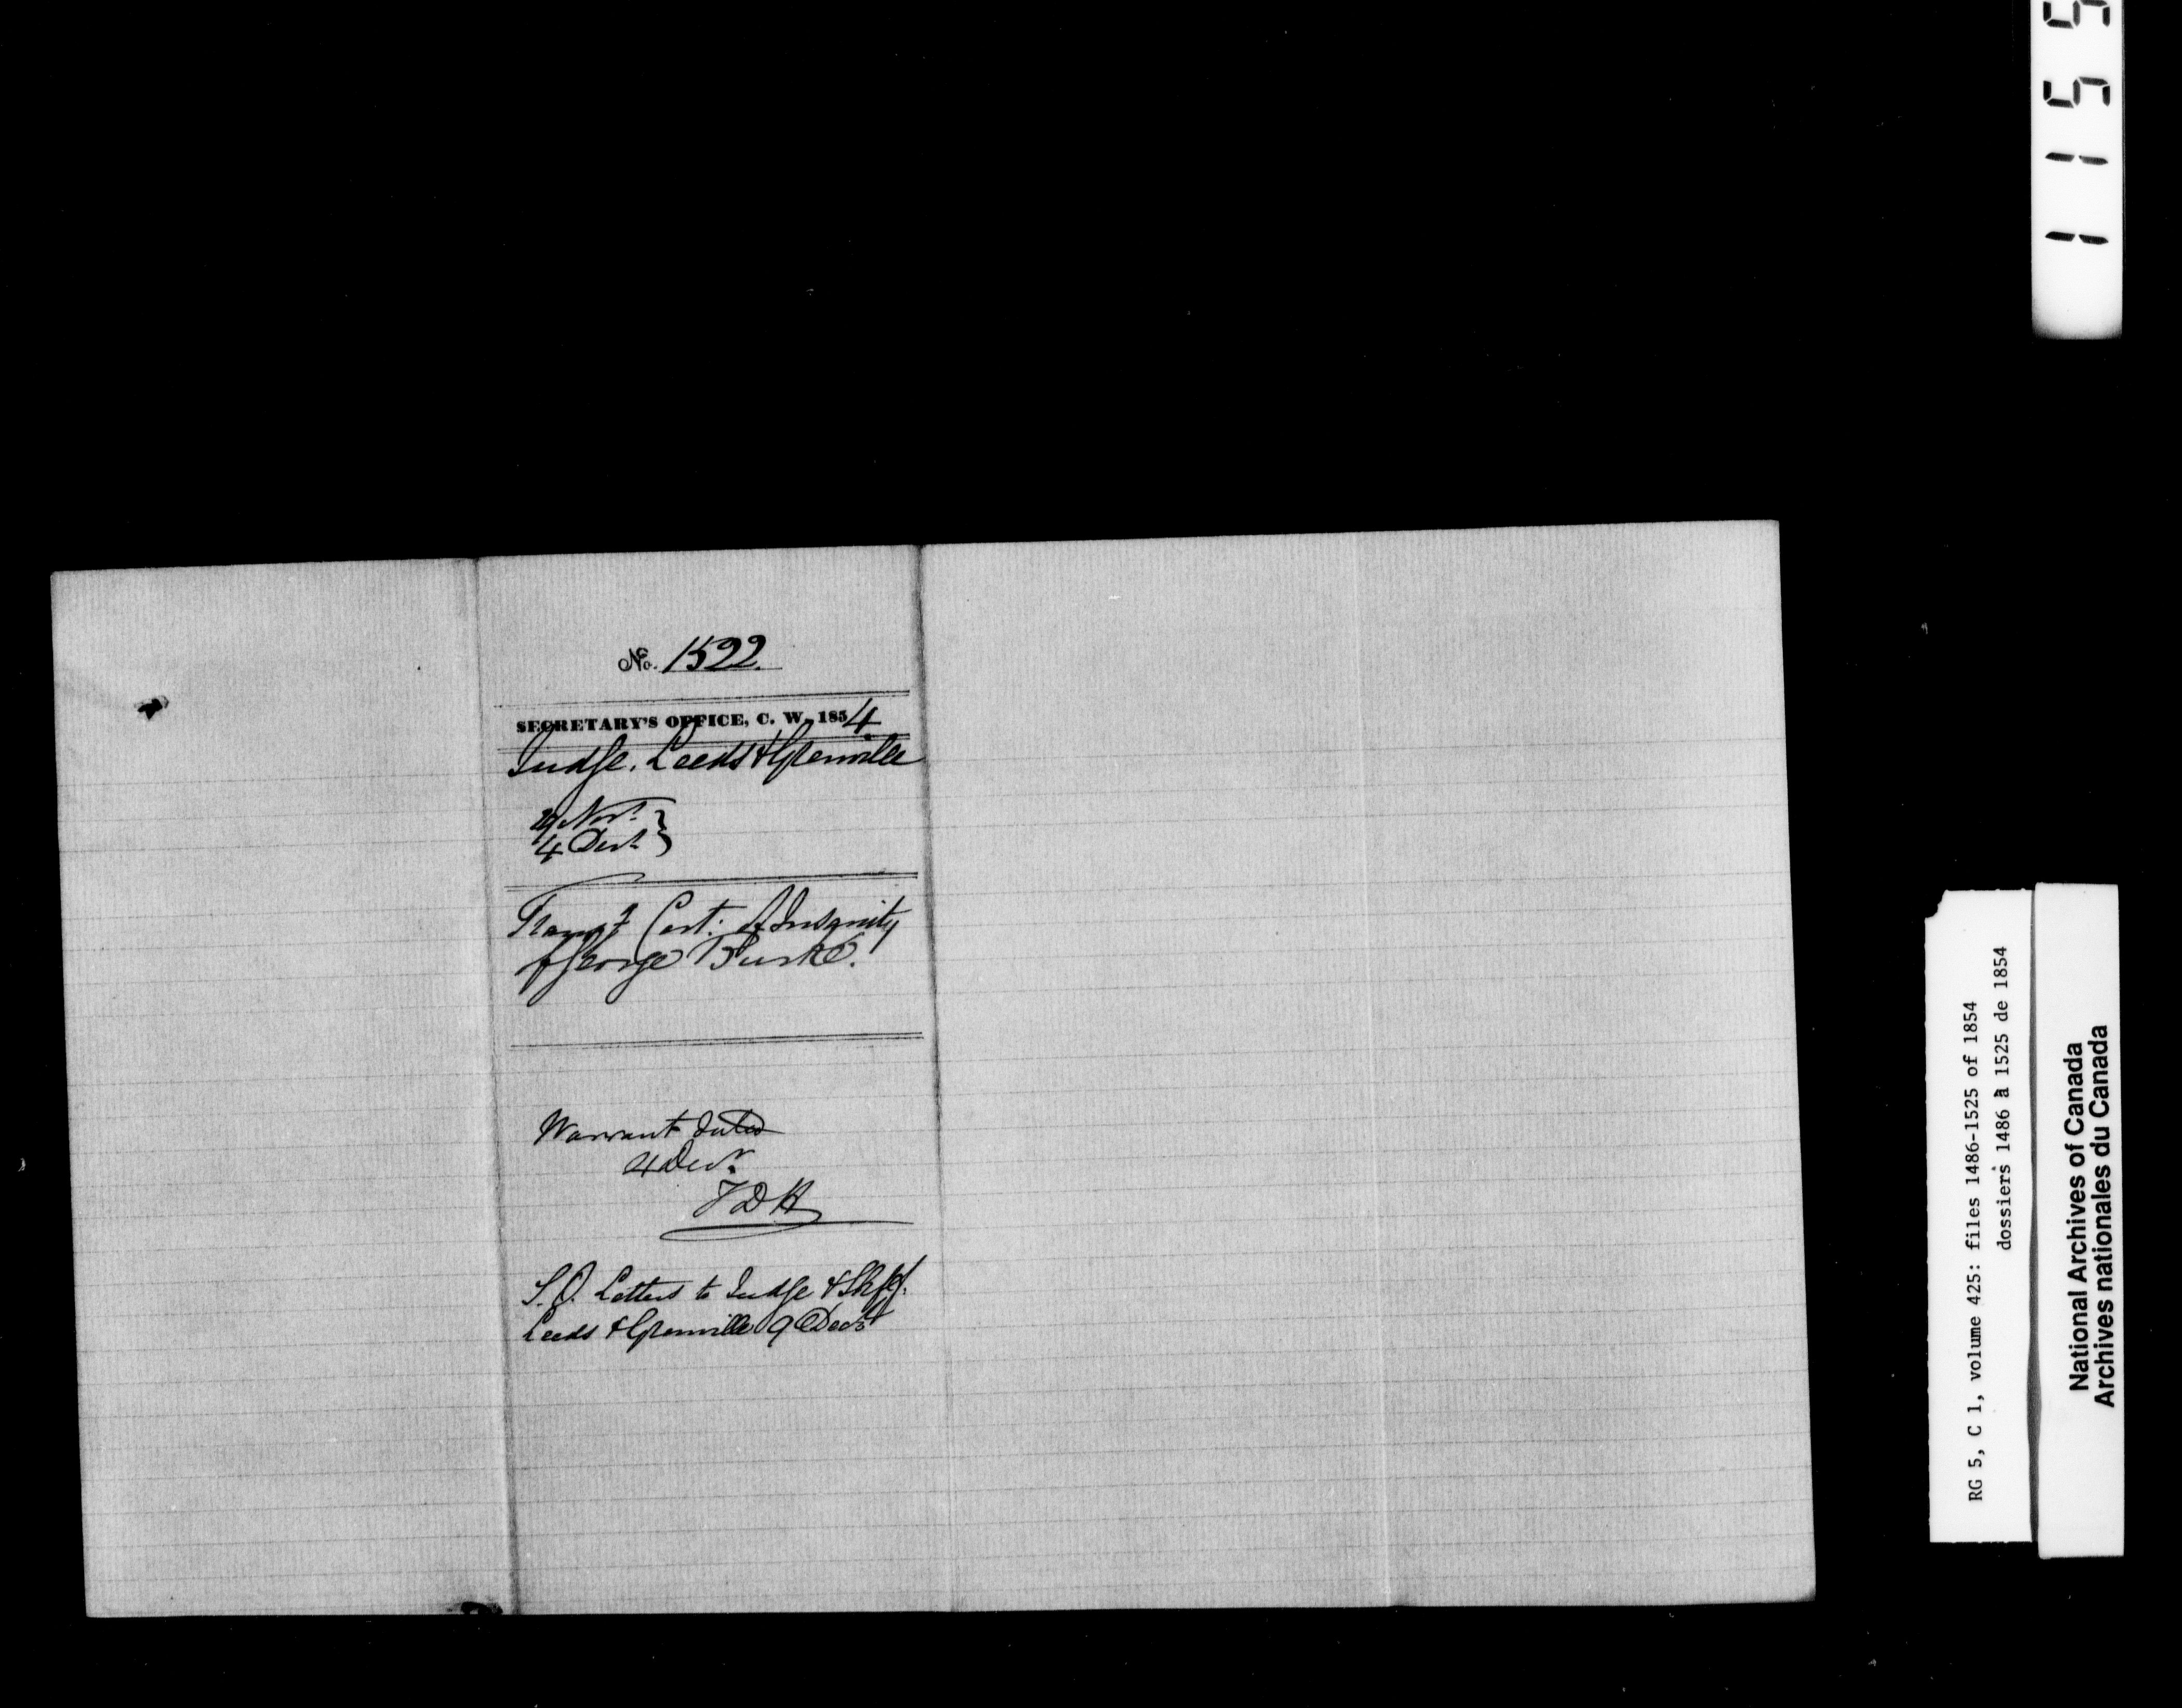 No. 1522.
SECRETARY'S OFFICE, C. W. 1854
Judge. Leeds & Grenville
Novr
4 Decr
Cert: of Insanity
of George Burke.
Warrant dated
4 Decr
T D H
S. O. Letters to Judge & Shff.
Leeds & Grenville 9 Decr
1155
RG 5, C 1, volume 425: files 1486-1525 of 1854
dossiers 1486 à 1525 de 1854
National Archives of Canada
Archives nationales du Canada